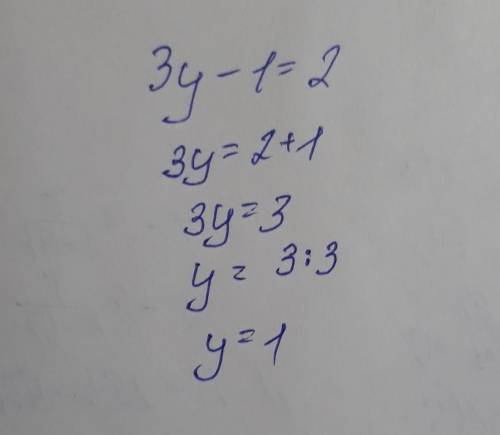 3y - 1 = 2
3y = 2 + 1
3y = 3
y = 3 : 3
y = 1